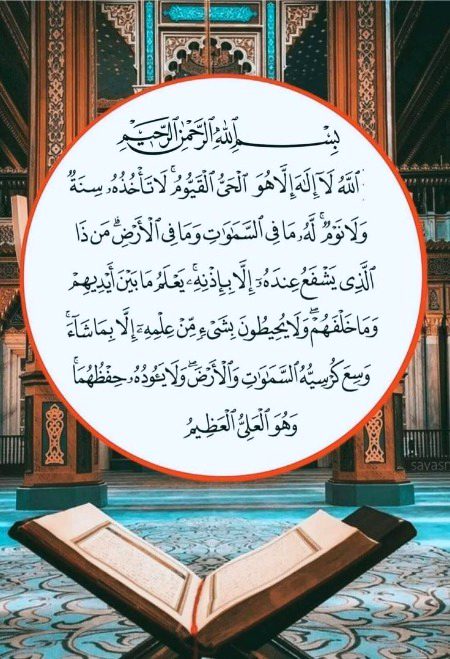 بِسْمِ ٱللَّهِ ٱلرَّحْمَٰنِ ٱلرَّحِيمِ
ٱللَّهُ لَآ إِلَٰهَ إِلَّا هُوَ ٱلْحَىُّ ٱلْقَيُّومُ ۚ لَا تَأْخُذُهُۥ سِنَةٌ
وَلَا نَوْمٌ ۚ لَّهُۥ مَا فِى ٱلسَّمَٰوَٰتِ وَمَا فِى ٱلْأَرْضِ ۗ مَن ذَا
ٱلَّذِى يَشْفَعُ عِندَهُۥٓ إِلَّا بِإِذْنِهِۦ ۚ يَعْلَمُ مَا بَيْنَ أَيْدِيهِمْ
وَمَا خَلْفَهُمْ ۖ وَلَا يُحِيطُونَ بِشَىْءٍ مِّنْ عِلْمِهِۦٓ إِلَّا بِمَا شَآءَ ۚ
وَسِعَ كُرْسِيُّهُ ٱلسَّمَٰوَٰتِ وَٱلْأَرْضَ ۖ وَلَا يَـُٔودُهُۥ حِفْظُهُمَا ۚ
وَهُوَ ٱلْعَلِىُّ ٱلْعَظِيمُ